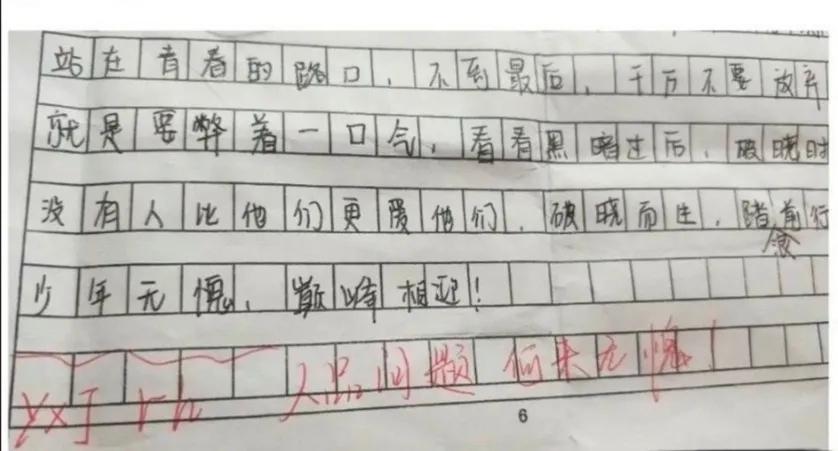 站在青春的路口，不到最后，千万不要放弃
就是要弊着一口气，看看黑暗过后，破晓时
没有人比他们更爱他们，破晓而生，踏前行
少年无愧，巅峰相迎！
yxj rh 人品问题 何来无愧！
6